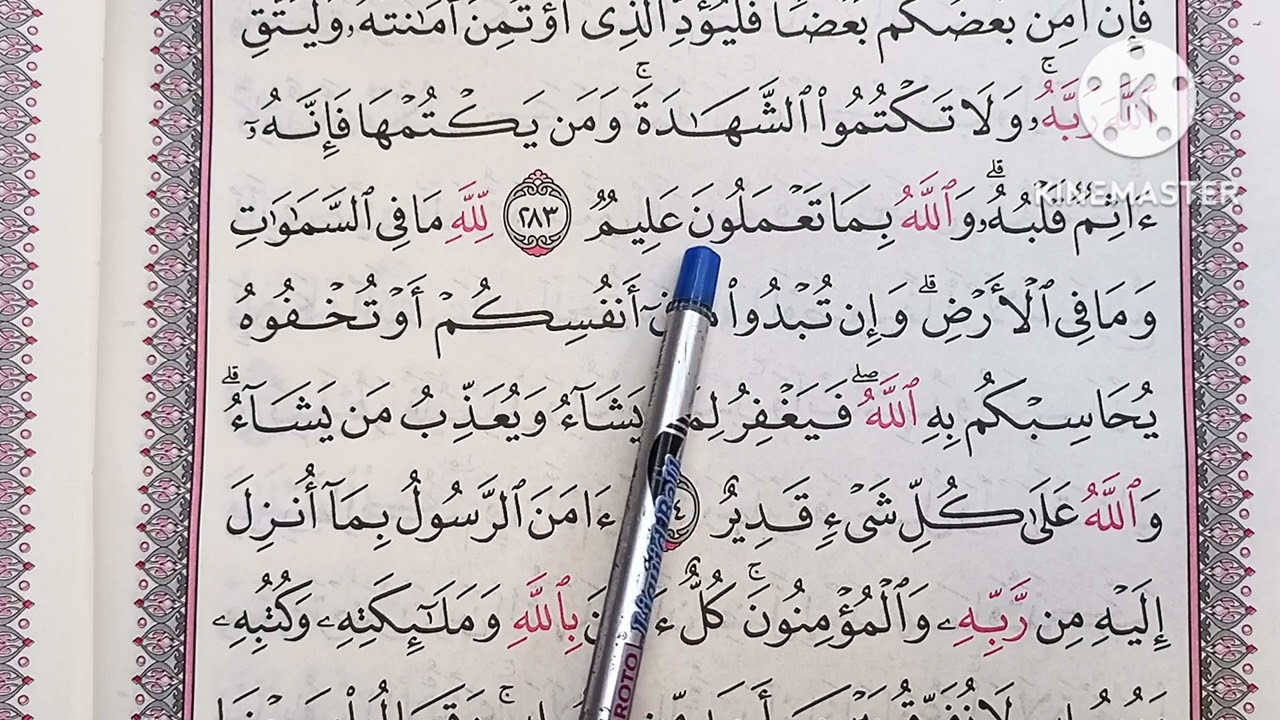 فَإِنْ أَمِنَ بَعْضُكُم بَعْضًا فَلْيُؤَدِّ ٱلَّذِى ٱؤْتُمِنَ أَمَٰنَتَهُۥ وَلْيَتَّقِ
ٱللَّهَ رَبَّهُۥۗ وَلَا تَكْتُمُوا۟ ٱلشَّهَٰدَةَۚ وَمَن يَكْتُمْهَا فَإِنَّهُۥٓ
ءَاثِمٌ قَلْبُهُۥۗ وَٱللَّهُ بِمَا تَعْمَلُونَ عَلِيمٌ ٢٨٣ لِّلَّهِ مَا فِى ٱلسَّمَٰوَٰتِ
وَمَا فِى ٱلْأَرْضِۗ وَإِن تُبْدُوا۟ أَنفُسِكُمْ أَوْ تُخْفُوهُ
يُحَاسِبْكُم بِهِ ٱللَّهُۖ فَيَغْفِرُ يَشَآءُ وَيُعَذِّبُ مَن يَشَآءُۗ
وَٱللَّهُ عَلَىٰ كُلِّ شَىْءٍ قَدِيرٌ ءَامَنَ ٱلرَّسُولُ بِمَآ أُنزِلَ
إِلَيْهِ مِن رَّبِّهِۦ وَٱلْمُؤْمِنُونَۚ كُلٌّ بِٱللَّهِ وَمَلَٰٓئِكَتِهِۦ وَكُتُبِهِۦ
KINEMASTER
ROTO